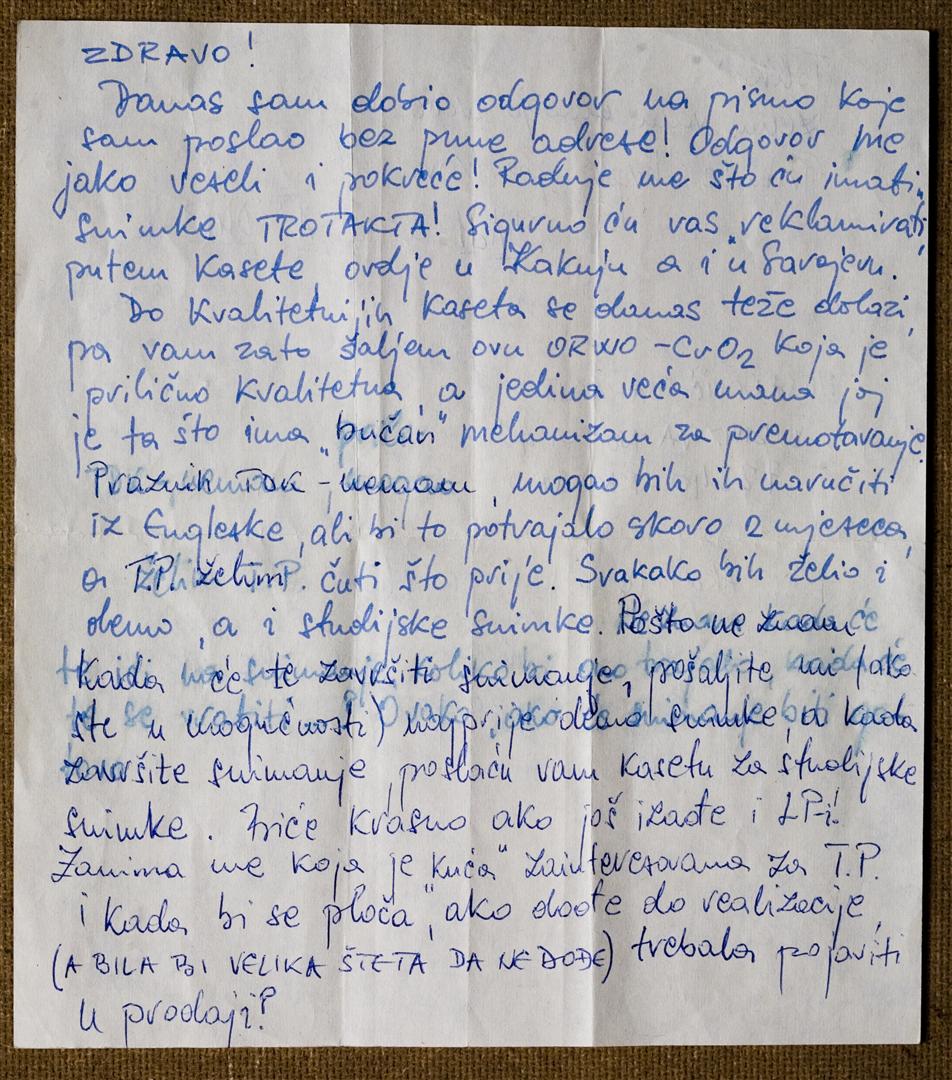 ZDRAVO!
Danas sam dobio odgovor na pismo koje
sam poslao bez pune adrese! Odgovor me
jako veseli i pokreće! Raduje me što ću imati
snimke TROTAKTA! Sigurno ću vas „reklamirati"
putem kasete, ovdje u Kaknju a i u Sarajevu.
Do kvalitetnijih kaseta se danas teže dolazi,
pa vam zato šaljem ovu ORWO - CrO2 koja je
prilično kvalitetna, a jedina veća mana joj
je ta što ima „bučan" mehanizam za premotavanje.
Praznik TDK - nemam, mogao bih ih naručiti
iz Engleske, ali bi to potrajalo skoro 2 mjeseca,
a T.P. želim čuti što prije. Svakako bih želio i
demo, a i studijske snimke. Pošto ne znam
kada će te završiti snimanje, pošaljite mi (ako
ste u mogućnosti) najprije demo snimke, a kada
završite snimanje poslaću vam kasetu za studijske
snimke. Biće krasno ako još izađe i LP-i!
Zanima me koja je „kuća" zainteresovana za T.P.
i kada bi se ploča, ako dođe do realizacije,
(A BILA BI VELIKA ŠTETA DA NE DOĐE) trebala pojaviti
u prodaji?